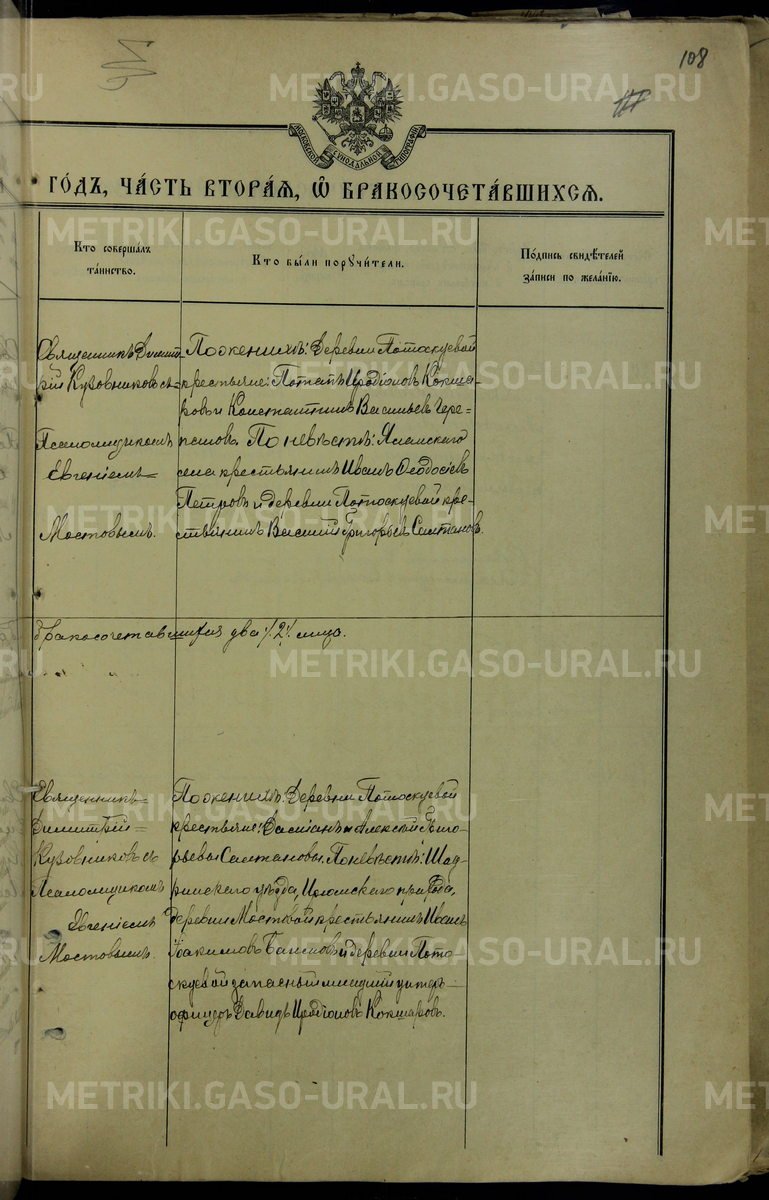 108
МОСКОВСКОЙ СѴНОДАЛЬНОЙ ТИПОГРАФІИ
ГО́ДЪ, ЧА́СТЬ ВТОРА́Ѧ, Ѽ БРАКОСОЧЕТА́ВШИХСѦ.
Кто соверша́лъ та́инство.
Кто бы́ли порꙋчи́тели.
По́дпись свидѣ́телей за́писи по жела́нїю.
Священникъ Димит-
рій Кузовниковъ съ
Псаломщикомъ
Евгеніемъ
Мостовымъ.
По женихѣ: Деревни Потоскуевой
крестьяне: Потапъ Иродіоновъ Кокша-
ровъ и Константинъ Васильевъ Чере-
пановъ. По невѣстѣ:
села крестьянинъ Иванъ Ѳеодосіевъ
Петровъ и деревни Потоскуевой кре-
стьянинъ Василій Григорьевъ Салтановъ.
бракосочетавшихся два /2/ лица.
Священникъ
Димитрій
Кузовниковъ съ
Псаломщикомъ
Евгеніемъ
Мостовымъ.
По женихѣ: Деревни Потоскуевой
крестьяне: Даміанъ и Алексѣй Григо-
рьевы Салтановы. По невѣстѣ: Шад-
ринскаго уѣзда, прихода,
деревни Мостовой крестьянинъ Иванъ
Іоакимовъ и деревни Пото-
скуевой запасный младшій унтеръ-
офицеръ Давидъ Иродіоновъ Кокшаровъ.
METRIKI.GASO-URAL.RU